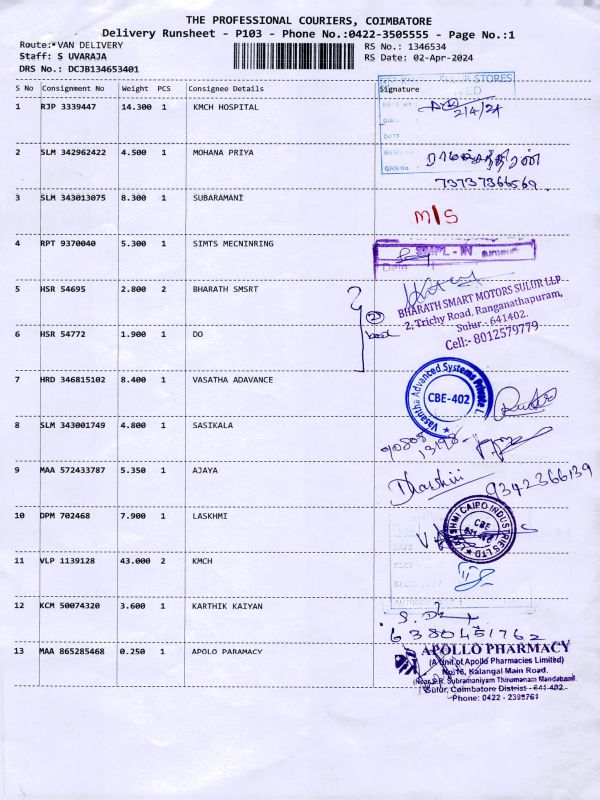 THE PROFESSIONAL COURIERS, COIMBATORE
Delivery Runsheet - P103 - Phone No.:0422-3505555 - Page No.:1
Route: VAN DELIVERY
RS No.: 1346534
Staff: S UVARAJA
RS Date: 02-Apr-2024
DRS No.: DCJB134653401
S No Consignment No Weight PCS Consignee Details Signature
STORES
1 RJP 3339447 14.300 1 KMCH HOSPITAL
2/4/24
DATE
2 SLM 342962422 4.500 1 MOHANA PRIYA
GRN No
ராமச்சந்திரன்
73737366569
3 SLM 343013075 8.300 1 SUBARAMANI
M/S
4 RPT 9370040 5.300 1 SIMTS MECNINRING
5 HSR 54695 2.800 2 BHARATH SMSRT
BHARATH SMART MOTORS SULUR LLP
2, Trichy Road, Ranganathapuram,
Sulur - 641402.
Cell:- 8012579779
2
box
6 HSR 54772 1.900 1 DO
7 HRD 346815102 8.400 1 VASATHA ADAVANCE
Vasantha Advanced Systems Private L
CBE-402
8 SLM 343001749 4.800 1 SASIKALA
9 MAA 572433787 5.350 1 AJAYA
Dharshini
9342366139
10 DPM 702468 7.900 1 LASKHMI
LAKSHMI CAIPO INDUSTRIES LTD
CBE
DATE
11 VLP 1139128 43.000 2 KMCH
12 KCM 50074320 3.600 1 KARTHIK KAIYAN
6380451762
13 MAA 865285468 0.250 1 APOLO PARAMACY
APOLLO PHARMACY
(A Unit of Apollo Pharmacies Limited)
No:16, Kalangal Main Road,
(Near P.R. Subramaniyam Thirumanam Mandabam)
Sulur, Coimbatore District - 641 402.
Phone: 0422 - 2385761